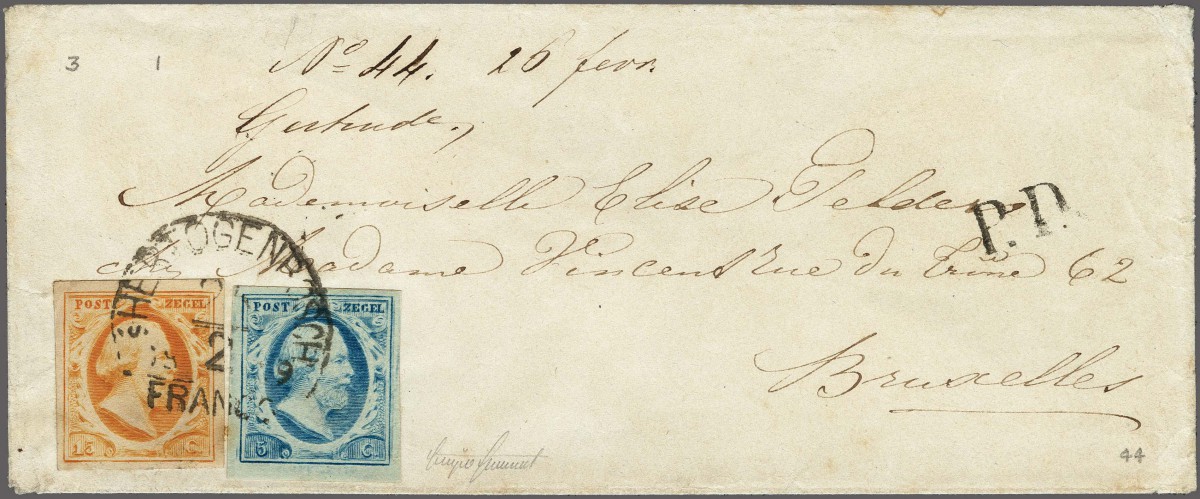 3 1 Nº 44. 26 fevr.
Gertrude,
Mademoiselle Elise Pelders
chez Madame Vincent rue du trône 62
Bruxelles
P.D.
'S HERTOGENBOSCH
2
9
FRANCO
POST ZEGEL
15 C
POST ZEGEL
5 C
44